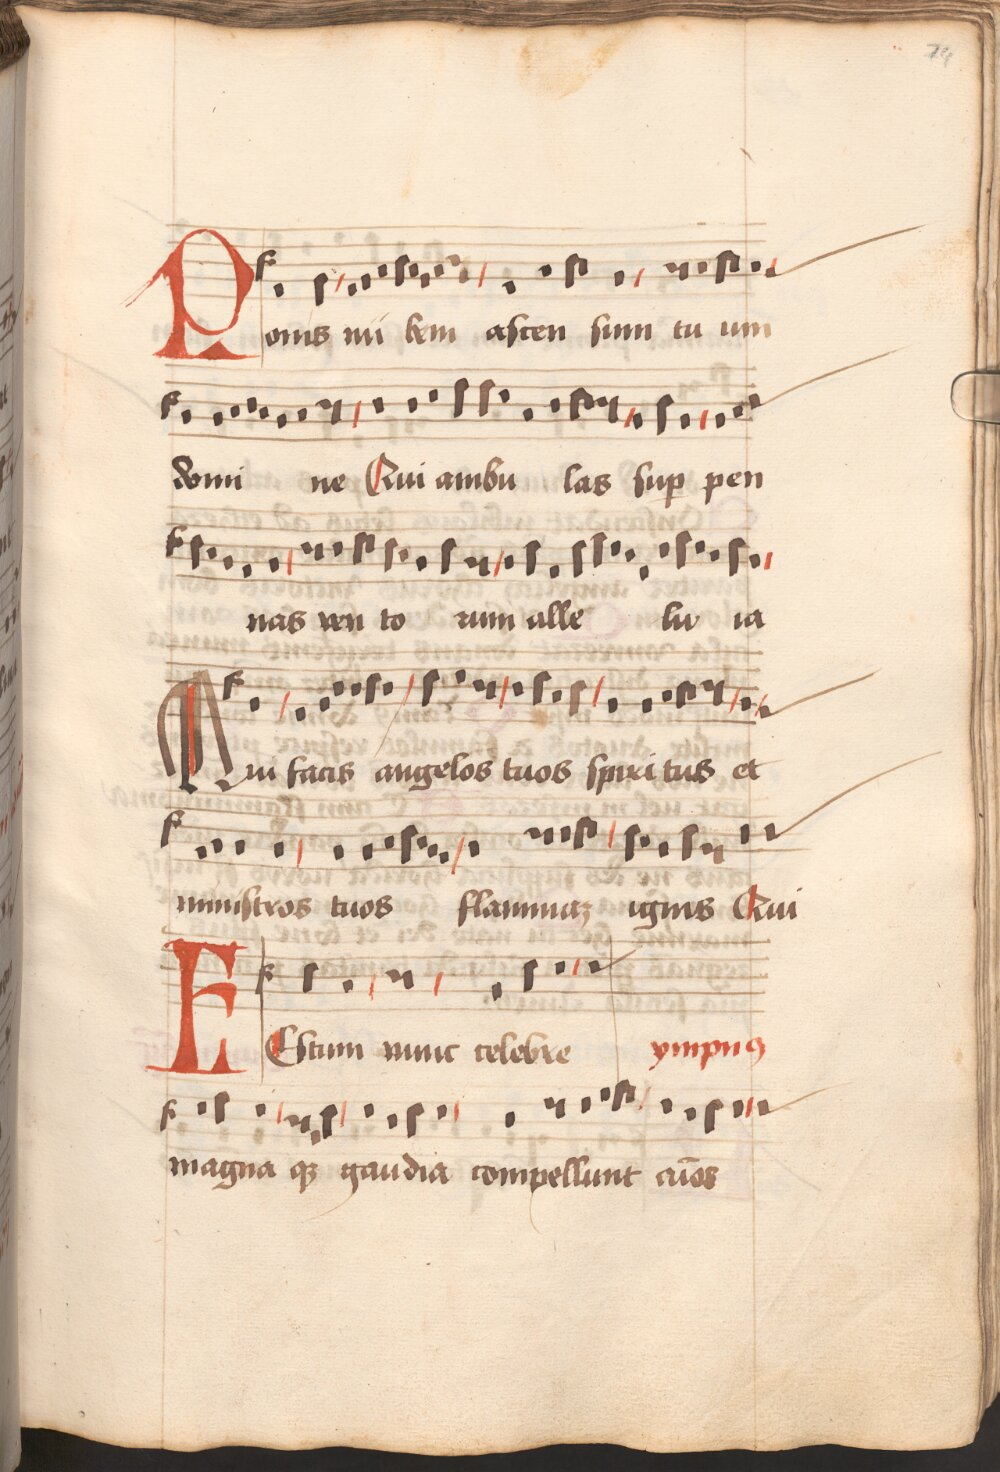 Ponis nu bem ascen sum tu um
domi ne Qui ambu las sup pen
nas ven to rum alle lu ia
Qui facis angelos tuos spiri tus et
ministros tuos flammaz ignis Qui
FEstum nunc celebre ympnus
magna qz gaudia compellunt